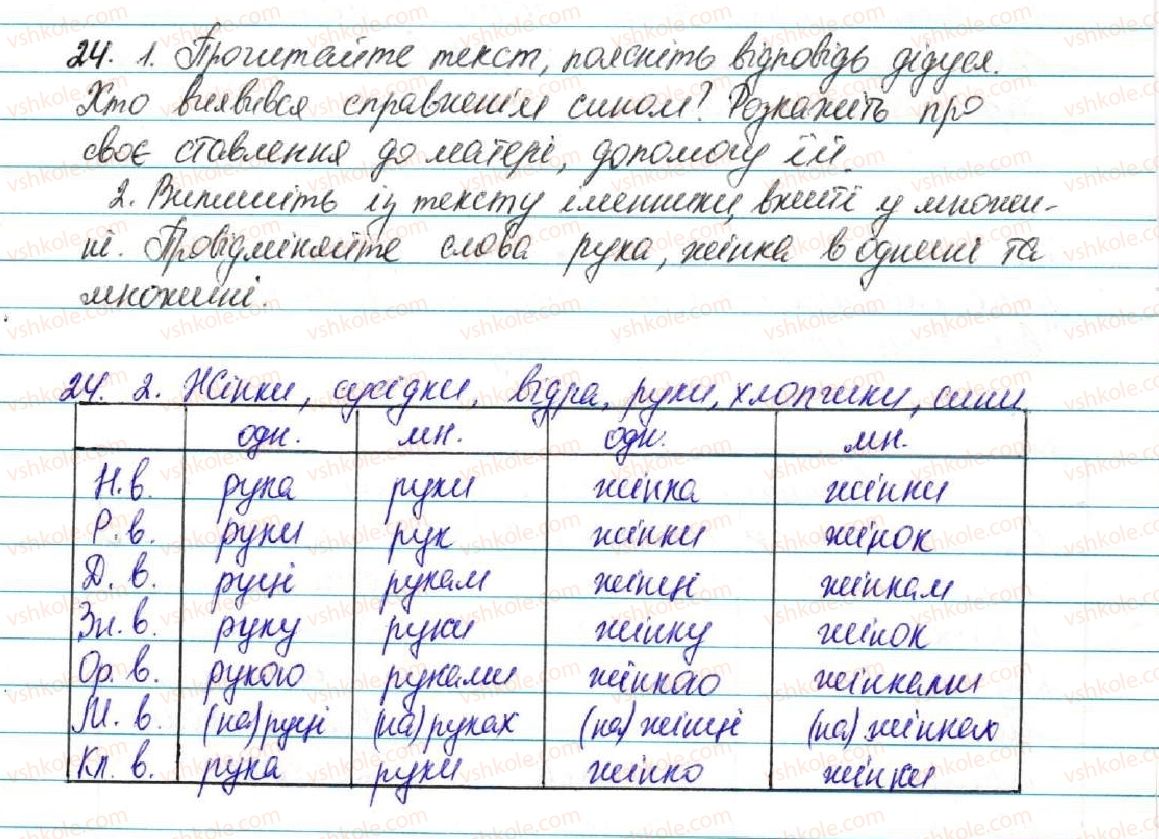 24. 1. Прочитайте текст, поясніть відповідь дідуся.
Хто виявився справжнім сином? Розкажіть про
своє ставлення до матері, допомогу їй.
2. Випишіть із тексту іменники, вжиті у множи-
ні. Провідміняйте слова рука, жінка в однині та
множині.
24. 2. Жінки, сусідки, відра, руки, хлопчики, сини.
одн. мн. одн. мн.
Н. в. рука руки жінка жінки
Р. в. руки рук жінки жінок
Д. в. руці рукам жінці жінкам
Зн. в. руку руки жінку жінок
Ор. в. рукою руками жінкою жінками
М. в. (на) руці (на) руках (на) жінці (на) жінках
Кл. в. рука руки жінко жінки
vshkole.com